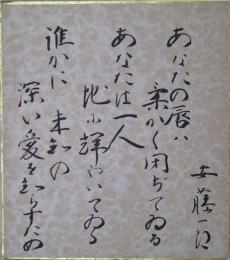 あなたの唇は
柔かく閉ぢてゐる
あなたは一人
地に輝いてゐる
誰かに 未知の
深い愛を知らすため
安藤一郎